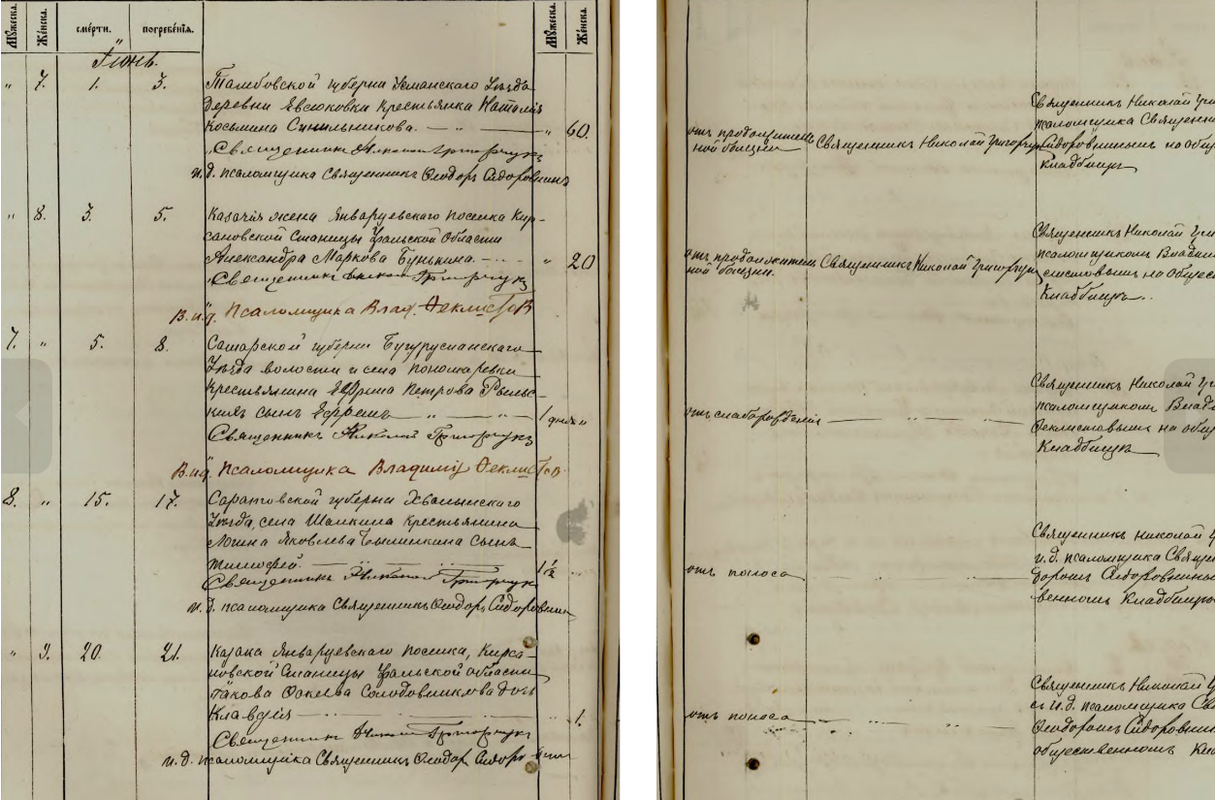 Мужеска. Женска. смерти. погребенія. Мужеска. Женска.
Іюнь.
„ 7. 1. 3. Тамбовской губерни Усманскаго Уѣзда
деревни Евсюковки Крестьянка Наталія
Косьмина Синильникова. — „ — „ 60.
Священникъ Николай Григорчукъ
и. д. псаломщика Священникъ Ѳеодоръ Сидоровнинъ
„ 8. 3. 5. Казачія жена Январцевскаго поселка Кир-
сановской Станицы Уральской Области
Александра Маркова Бунькина. — „ 20
Священникъ Николай Григорчукъ
В. и. д. Псаломщика Влад. Ѳеклистовъ
7. „ 5. 8. Самарской губерни Бугурусланскаго
Уѣзда волости и села Пономаревки
Крестьянина Ефрема Петрова
сынъ Ефремъ — „ — „ — 1 дня „
Священникъ Николай Григорчукъ
В. и. д. Псаломщика Владиміръ Ѳеклистовъ
8. „ 15. 17. Саратовской губерни Хвалынскаго
Уѣзда, села Шалкина Крестьянина
Логина Яковлева сынъ
Тимофей. — 1½ „
Священникъ Николай Григорчукъ
и. д. псаломщика Священникъ Ѳеодоръ Сидоровнинъ
„ 9. 20. 21. Казака Январцевскаго поселка, Кирса-
новской Станицы Уральской области
Іакова Солодовникова дочь
Клавдія — 1.
Священникъ Николай Григорчукъ
и. д. псаломщика Священникъ Ѳеодоръ
отъ продолжитель-
ной болѣзни
Священникъ Николай Григорчукъ
Священникъ Николай Гри
псаломщика Священ
Сидоровнинымъ на общ
кладбищѣ
отъ продолжитель-
ной болѣзни.
Священникъ Николай Григорчукъ
Священникъ Николай Гри
псаломщикомъ Влади
клистовымъ на общес
Кладбищѣ.
отъ слаборожденія — „ —
Священникъ Николай Г
псаломщикомъ Влад
Ѳеклистовымъ на общ
Кладбищѣ
отъ поноса — „ —
Священникъ Николай Г
и. д. псаломщика Свящ
доромъ Сидоровнины
венномъ Кладбищѣ
отъ поноса — „ —
Священникъ Николай Г
съ и. д. псаломщика Св
Ѳеодоромъ Сидоровни
общественномъ Кл